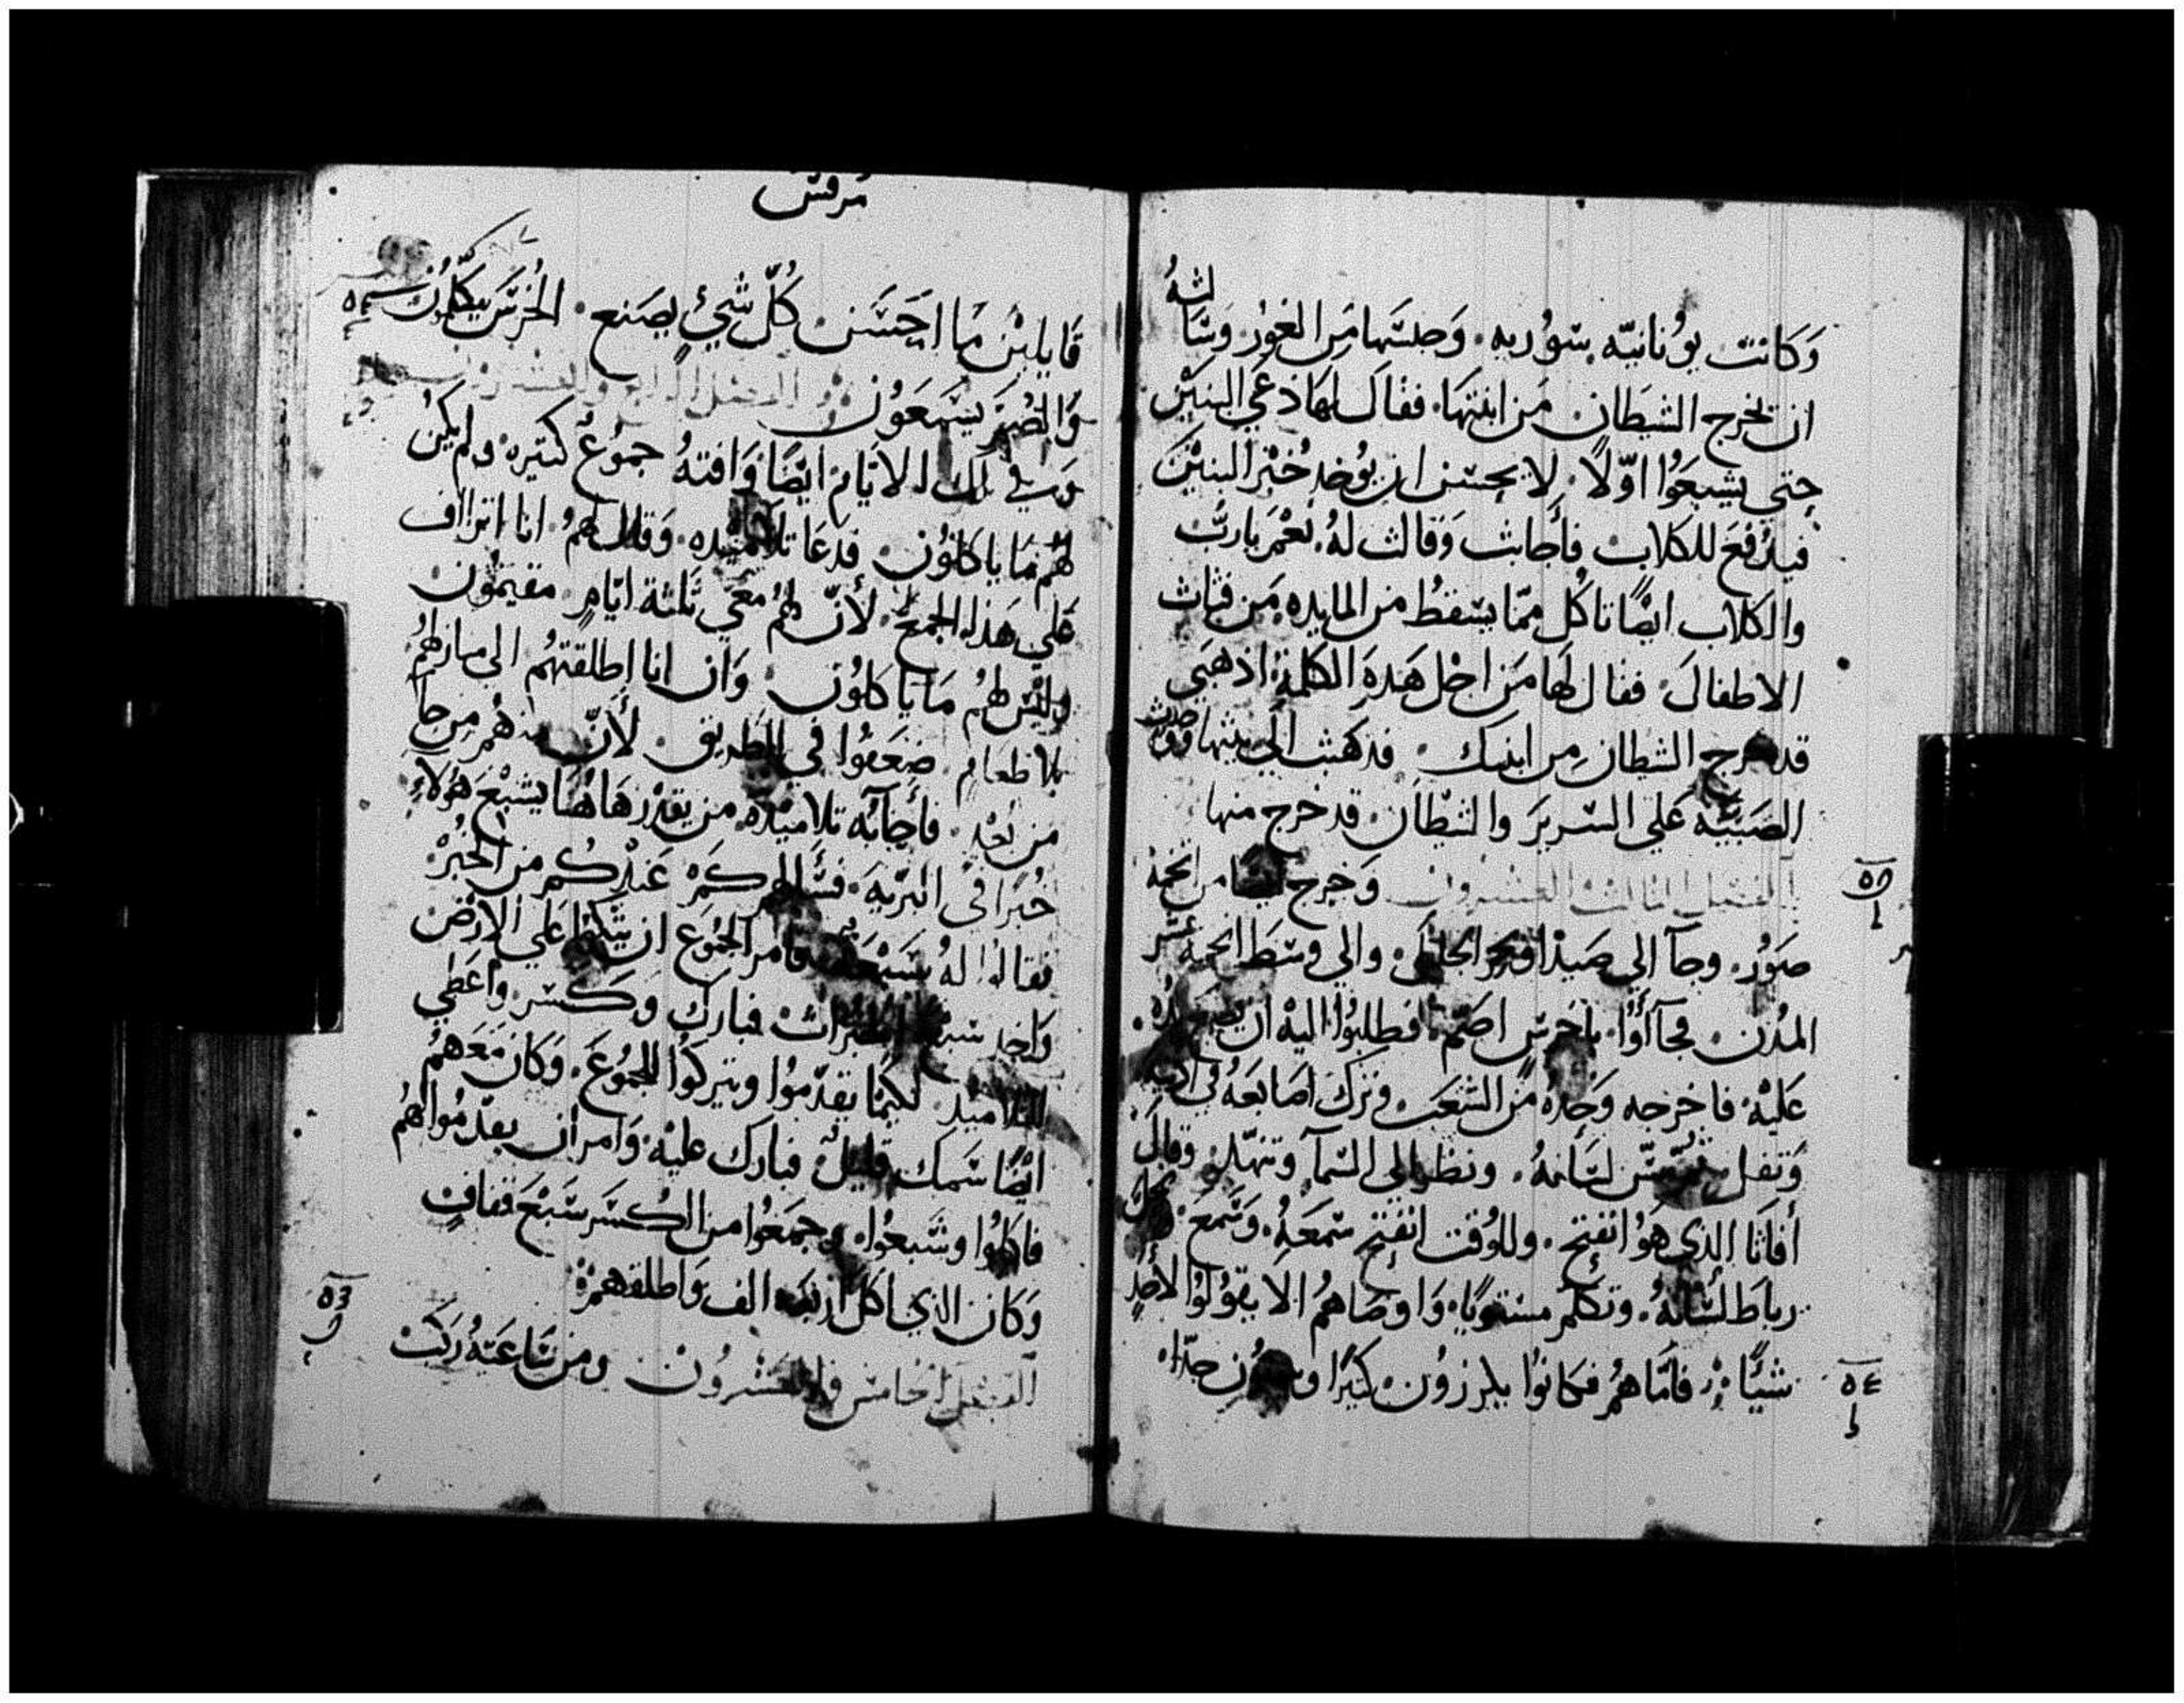 وَكانت يونانيّه بسوريه. وَجنسها من الغور وَسالته
ان يخرج الشيطان من ابنتها. فقال لها دعي البنين
حتي يشبعوا اوّلاً. لا يحسن ان يوخد خبز البنين
فيدفع للكلاب فأجابت وَقالت لهُ. نعم يا ربّ
والكلاب ايضًا تاكل ممّا يسقط من المايده من فتات
الاطفال. فقال لها من اجل هده الكلمة. ادهبي
قد خرج الشيطان من ابنتك. فدهبت الي بيتها ووجدت
الصبيّه علي السرير والشيطان قد خرج منها
الفصل الثالث والعشرون وَخرج من تخم
صور. وجآ الي صيدا الجليل. والي وسط تخم عشر
المدن. فجآأوا باخرس اصم. فطلبوا اليه ان يضع يده
عليه. فاخرجه وَحده من الشعب وترك اصابعه في
وَتفل لسانهُ. ونظر الي السمآ وتنهّد. وقال
أفاتا الدي هو انفتح. وللوقت انفتح سمعهُ. وَسمع.
رباط لسانهُ. وتكلم مستويًا. وَاوصاهمُ الا يقولوا لاحدٍ
شيئًا. فامّا هم فكانوا يكرزون كثيرًا جدّا.
٥٤
مرقس
قايلين ما احسن كلّ شيءٍ يصنع. الخرس يتكلّمون
والصُمّ يسمعون الفصل الرابع والعشرون
وفي تلك الايام ايضًا وَافته جموعٌ كتيره ولم يكن
لهُم ما ياكلون. فدعا تلاميده. وَقال لهم. انا اتراف
علي هذا الجمع. لأنّ لهُم معي ثلثة ايّامٍ. مقيمون
وليس لهُم ما ياكلون. وَان انا اطلقتهُم الي منازلهُم
بلا طعامٍ. ضعفوا في الطريق. لأنّ منهم من جآ
من بُعْدٍ. فأجابه تلاميده. من يقدر هاهنا يشبع هولاء
خبزًا في البريّه. فسألهم كم عندكم من الخبز
فقالوا لهُ سبعة فامر الجموع ان يتكوا علي الارض
وَاخد سبع الخبزات فبارك وكسر. واعطي
التلاميد لكيما يقدّموا ويتركوا للجموع. وَكان معهم
ايضًا سمك قليل. فبارك عليه. وَامر ان يقدموا لهم
فاكلوا وشبعوا. وجمعوا من الكسر سبع قفافٍ
وَكان الدي اكل اربعه الف وَاطلقهم.
الفصل الخامس والعشرون ومن ساعته ركب